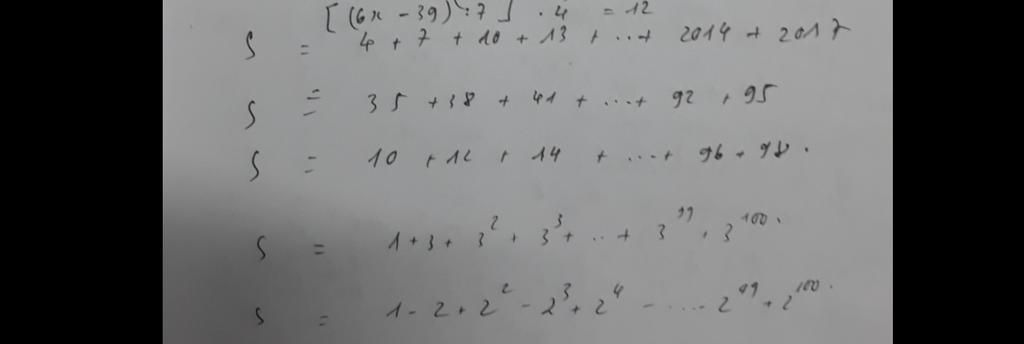 [(6x - 39) : 7] . 4 = 12
S = 4 + 7 + 10 + 13 + ... + 2014 + 2017
S = 35 + 38 + 41 + ... + 92 + 95
S = 10 + 12 + 14 + ... + 96 + 98.
S = 1 + 3 + 3² + 3³ + .. + 3⁹⁹ + 3¹⁰⁰.
S = 1 - 2 + 2² - 2³ + 2⁴ - .... - 2⁹⁹ + 2¹⁰⁰.